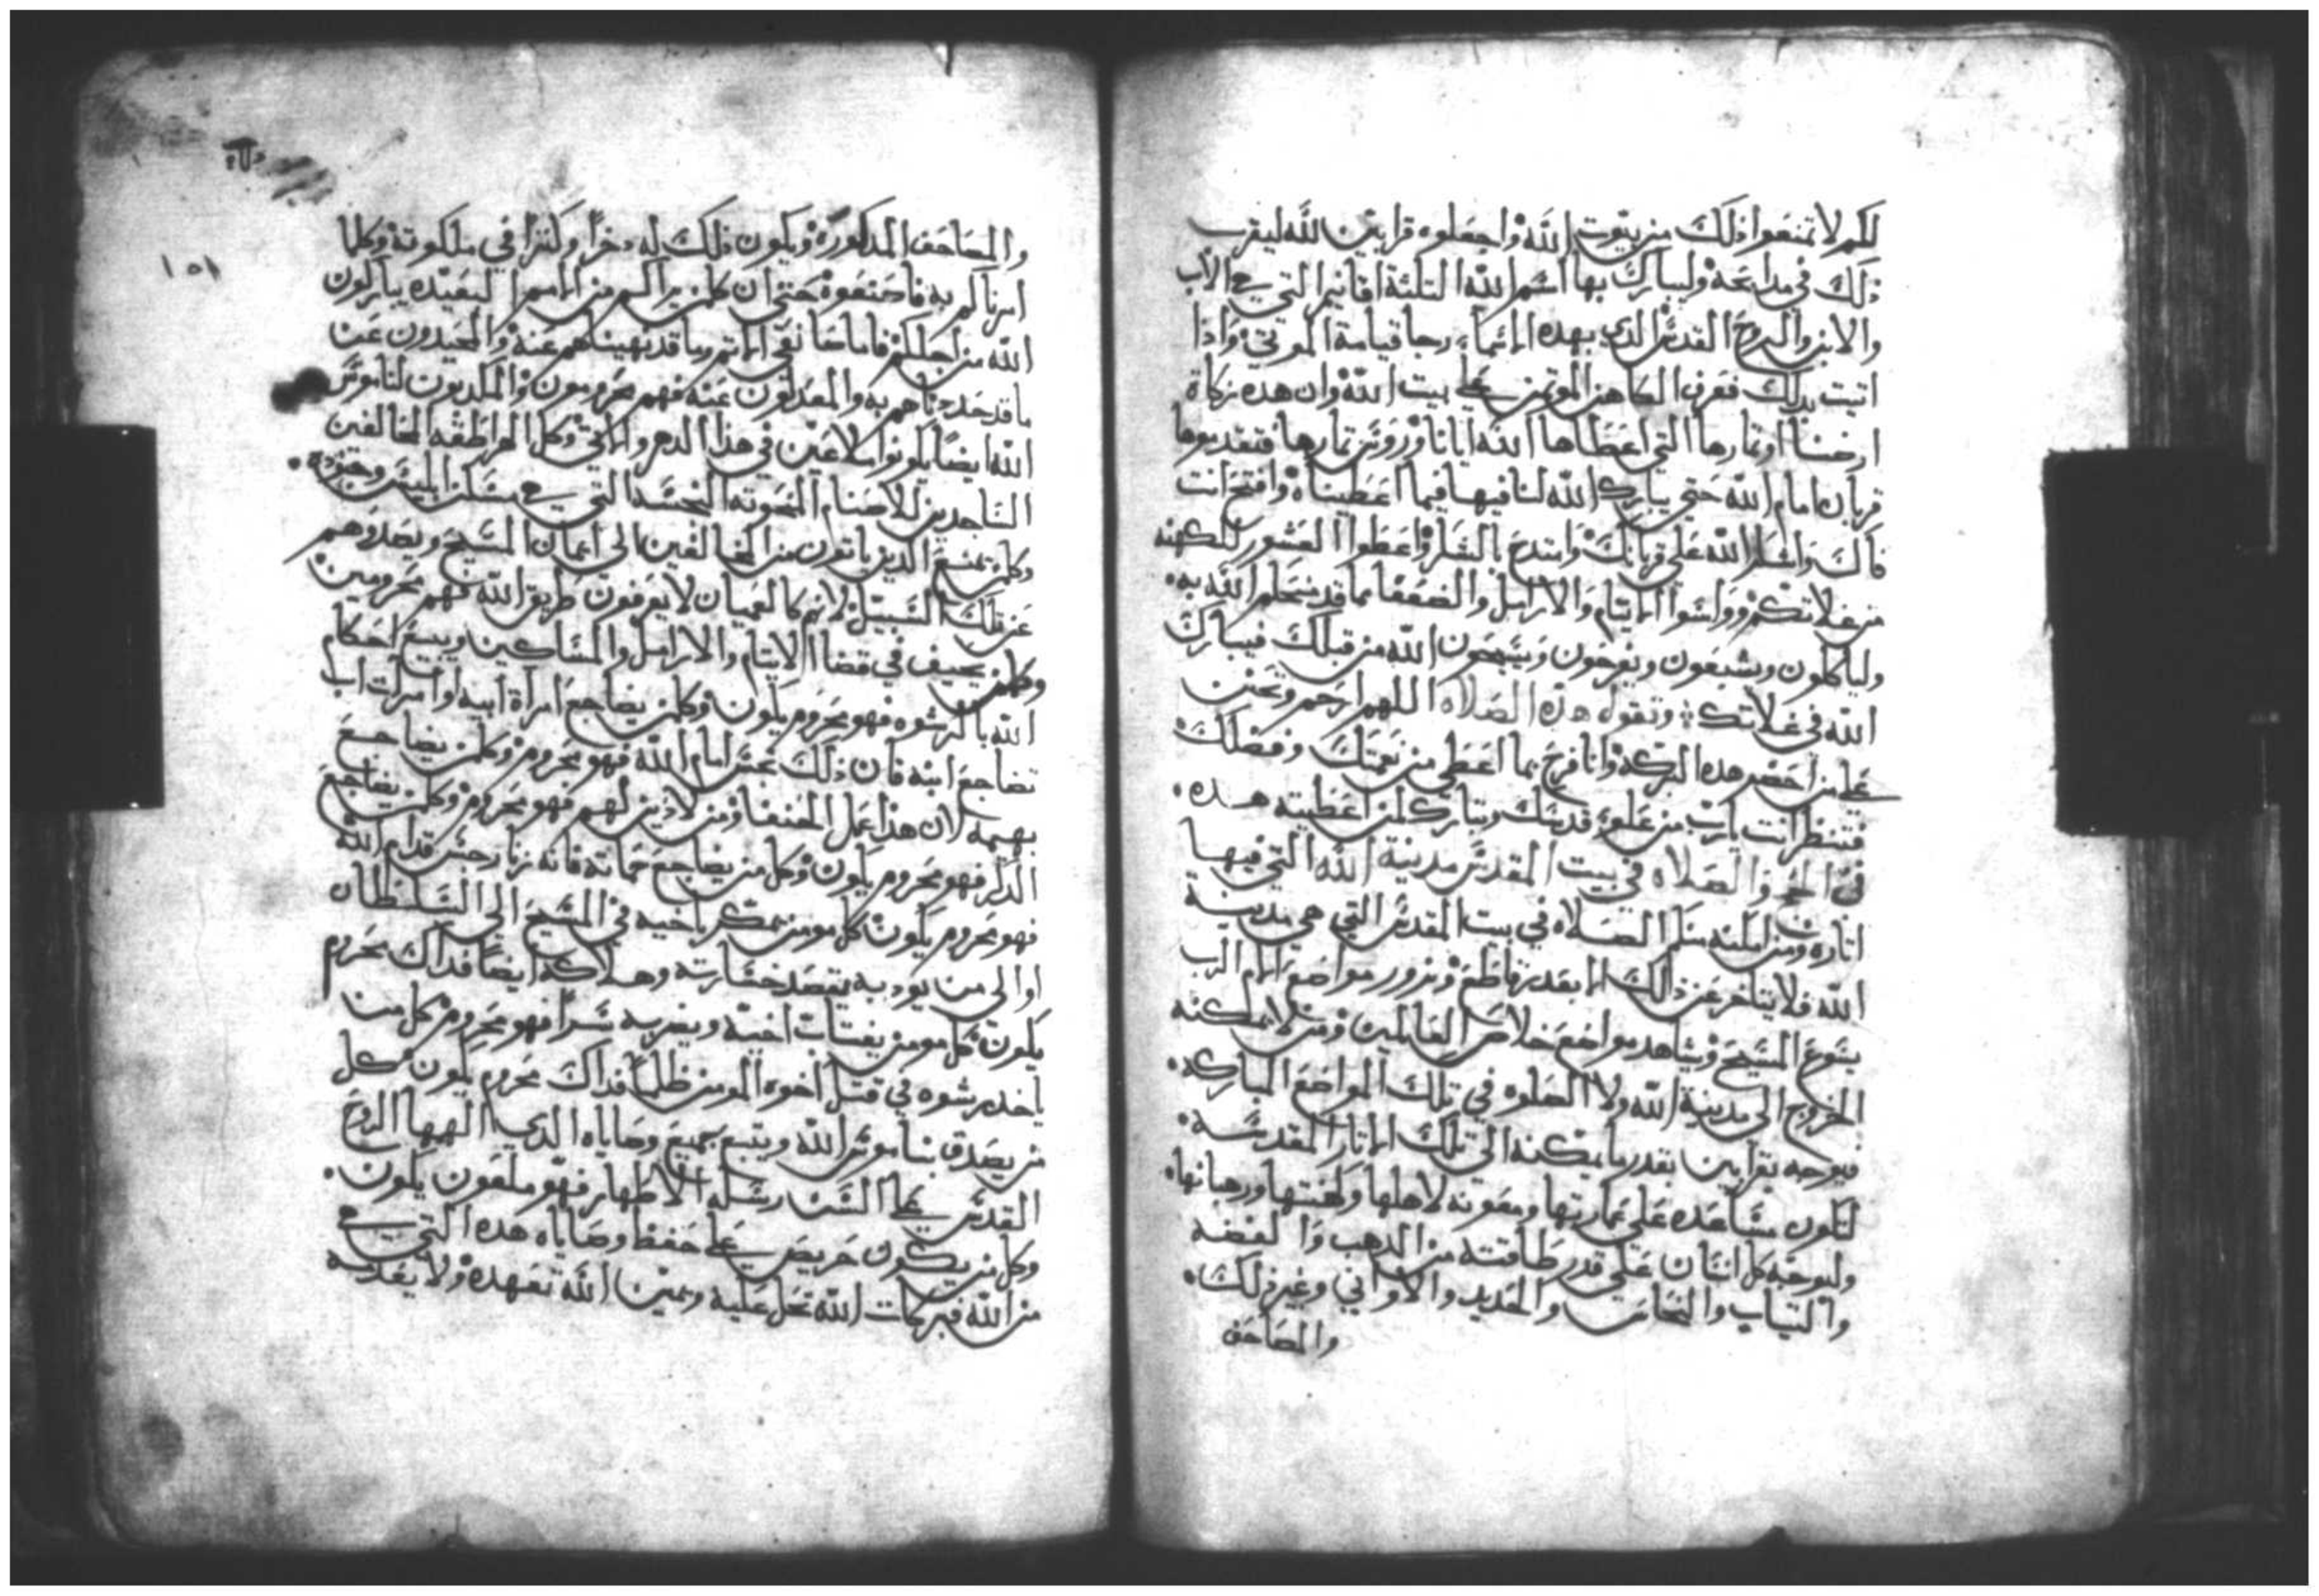 لكم لا تمنعوا ذلك من بيوت الله واجعلوه قرابين لله ليقرب
ذلك في مدابحه وليبارك بها اسم الله التلتة اقانيم التي هي الاب
والابن والروح القدس الدي بهده الاسماء رجا قيامة الموتي واذا
اتيت بدلك فعرف الكاهن الموتمن علي بيت الله وان هده زكاة
ارضنا او تمارها التي اعطاها الله ايانا وروس تمارها فتقدموها
قربان امام الله حتي يبارك الله لنا فيها فيما اعطيناه وافتح انت
فاك واشكر الله علي قربانك وابتدي بالشكر واعطوا العشور للكهنه
من غلاتكم وواسوا الايتام والارامل والضعفا مما قد منحكم الله به
ولياكلون ويشبعون ويفرحون ويسبحون الله من قبلك فيبارك
الله في غلاتك وتقول هذه الصلاه اللهم ارحم وتحنن
علي من احضر هده البركه وانا فرح بما اعطي من نعمتك وفضلك
فتنظر انت يارب من علو قدسك وتبارك لمن اعطيته هده
في الحج والصلاه في بيت المقدس مدينة الله التي فيها
اتاره ومن امكنه منكم الصلاه في بيت المقدس التي هي مدينة
الله فلا يتاخر عن ذلك الا بعدر قاطع ونزور مواضع الام الرب
يسوع المسيح ويشاهد مواضع خلاص العالمين ومن لا يمكنه
الخروج الي مدينة الله ولا الصلوه في تلك المواضع المباركه
فيوجه بقرابين بقدر ما يمكنه الي تلك الاتار المقدسه
لتكون مساعده علي عمارتها ومعونه لاهلها وكهنتها ورهبانها
وليوجه كل انسان علي قدر طاقته من الدهب والفضه
والتياب والنحاس والحديد والاواني وغير ذلك
والمصاحف
١٥١
والمصاحف المدكوره ويكون ذلك له دخرا وكنزا في ملكوته وكلما
امرناكم به فاصنعوه حتي ان كلمن يراكم من الامم البعيده يباركون
الله من اجلكم فاما صانعي الاتم وما قد نهيناهم عنه والمحيدون عن
ما قد حددناهم به والمعدلون عنه فهم محرومون والمكدبون لناموس
الله ايضا يكونوا ملاعين في هدا الدهر والاتي وكل الهراطقه المخالفين
الساجدين للاصنام المنحوته النجسه التي هي مسكن ابليس وجنوده
وكلمن يمنع الدين ياتون من المخالفين الي ايمان المسيح ويصدوهم
عن تلك السبيل لانهم كالعميان لا يعرفون طريق الله فهم محرومين
وكلمن يحيف في قضا الايتام والارامل والمساكين ويبيع احكام
الله بالرشوه فهو محروم يكون وكلمن يضاجع امراة ابيه او امرات اب
تضاجع ابنه فان ذلك نجس امام الله فهو محروم وكلمن يضاجع
بهيمه لان هذا عمل الحنفا ومن لا دين لهم فهو محروم وكلمن يضاجع
الدكر فهو محروم يكون وكل من يضاجع حماته فانه زنا رجس قدام الله
فهو محروم يكون كل مومن يمكر باخيه في المسيح الي السلطان
او الي من يوديه يقصد خسارته وهلاكه ايضا فداك محروم
يكون كل مومن يغتاب اخيه ويضربه سرا فهو محروم كل من
ياخد رشوه في قتل اخوه المومن ظلما فداك محروم يكون كل
من يصدق بناموس الله ويتبع جميع وصاياه الدي الهمها الروح
القدس علي السن رسله الاطهار فهو ملعون يكون
وكل من يكون حريص علي حفظ وصاياه هده التي هي
من الله فبركات الله تحل عليه ويمين الله تعهده ولا يعدمه